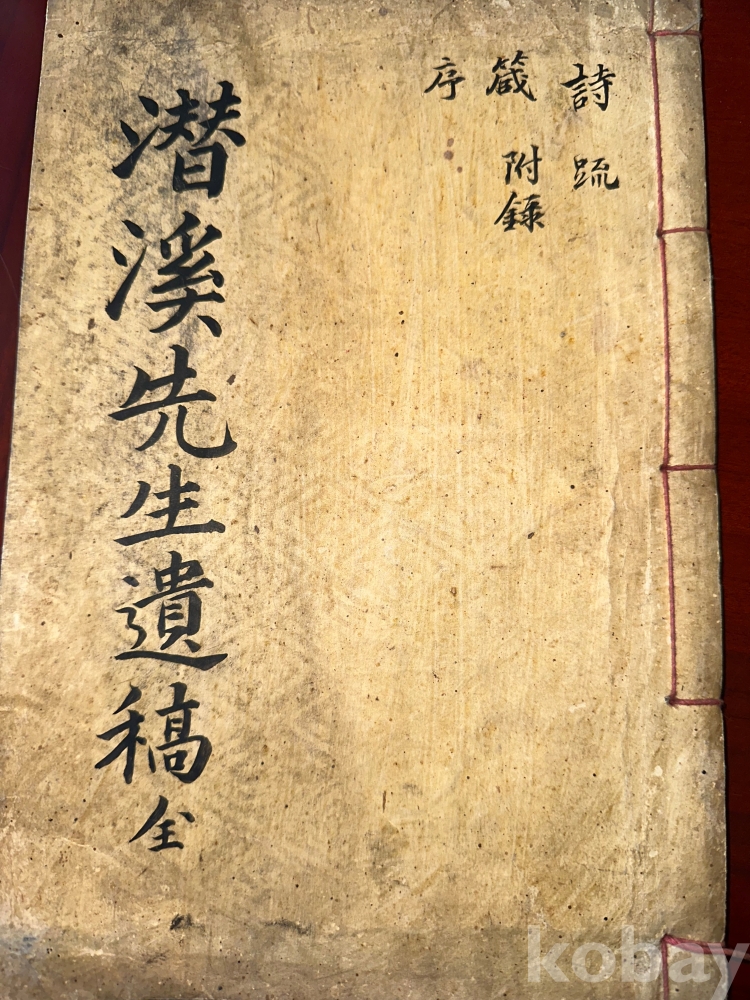 詩 疏
箴 附錄
序
潜溪先生遺稿 全
kobay